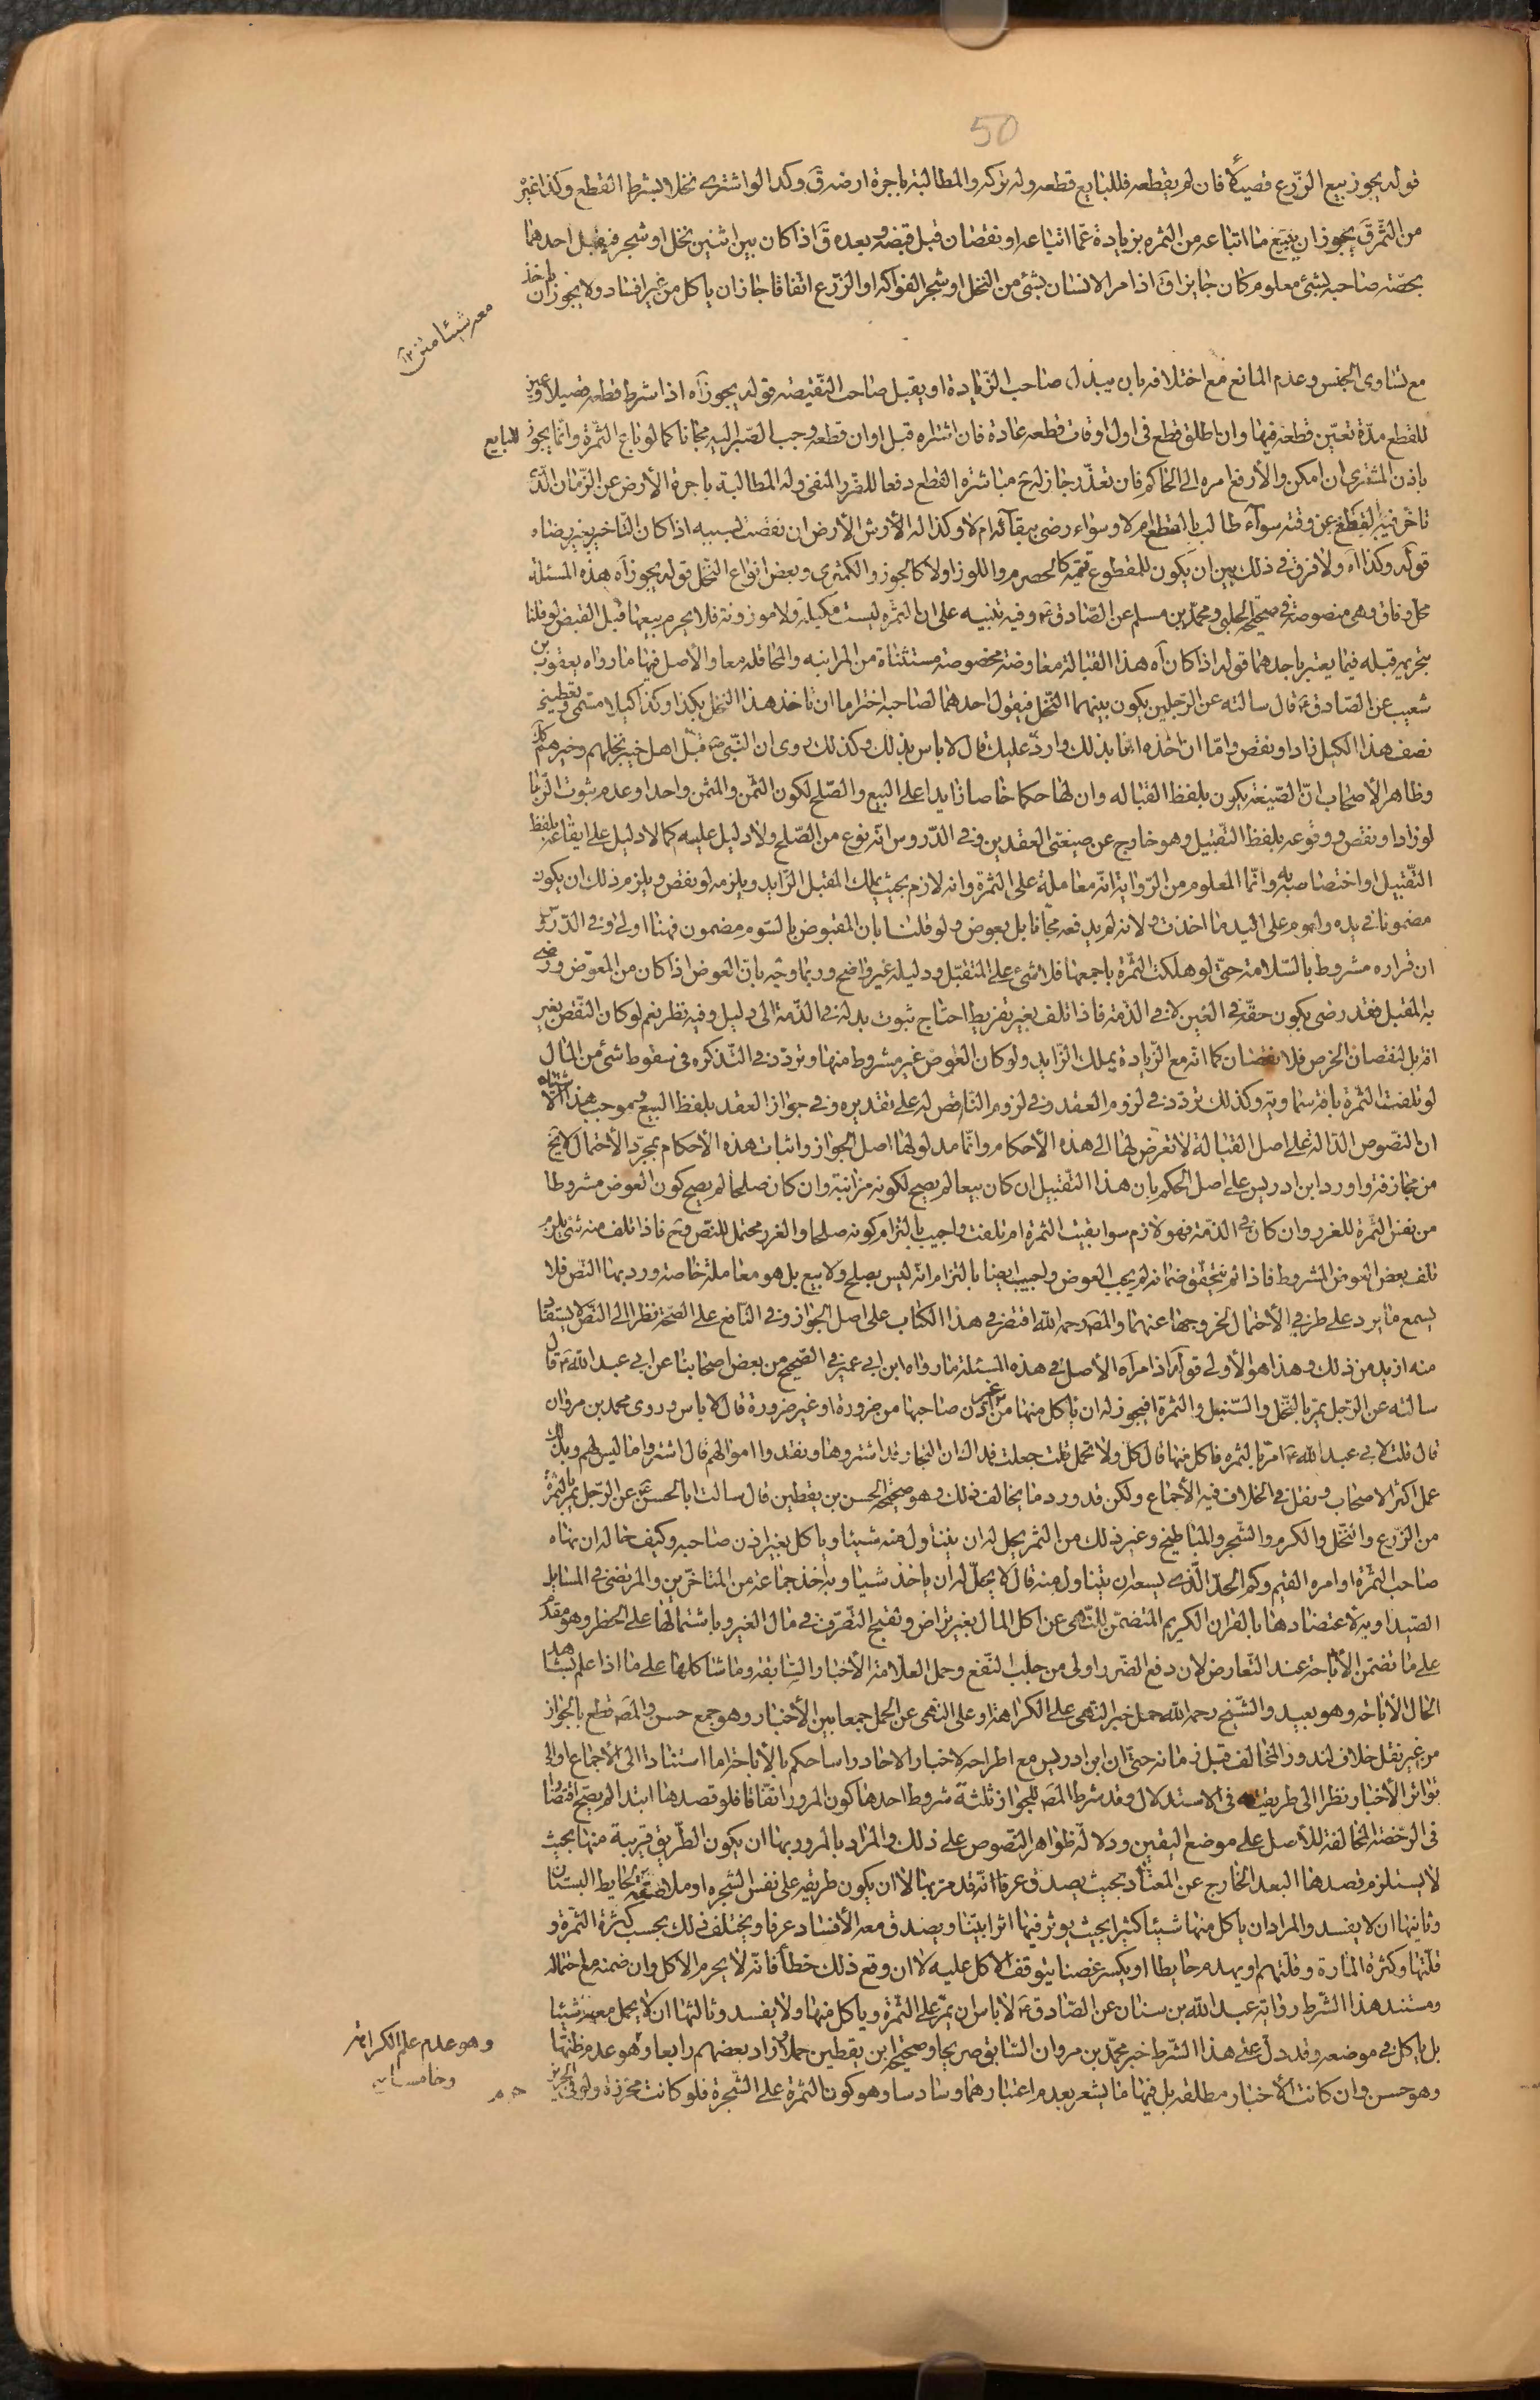 50
قوله يجوز بيع الزّرع قصيلا فان لم يقطعه فللبايع قطعه وله تركه والمطالبة باجرة ارضه ق وكذا لو اشترى نخلا بشرط القطع وكذا غيره
من الثمر ق يجوز ان يبيع ما ابتاعه من الثمره بزيادة عمّا ابتاعه او نقصان قبل قبضه وبعده ق اذا كان بين اثنين نخل او شجر فيقبل احدهما
بحصّته صاحبه بشئ معلوم كان جايزا ق اذا مر الانسان بشئ من النخل او شجر الفواكه او الزّرع اتفاقا جاز ان ياكل من غير افساد ولا يجوز ان ياخذ
معه شيئا متن
مع تساوى الجنس وعدم المانع فمع اختلافه بان يبذل صاحب الزّيادة او يقبل صاحب النّقيصه قوله يجوز آه اذا شرط قطعه قصيلا وعين
للقطع مدّة تعيّن قطعه فيها وان اطلق قطع فى اول اوقات قطعه عادة فان اشتراه قبل اوان قطعه وجب الصّبر اليه مجانا كما لو باع الثمرة وانّما يجوز للبايع
باذن المشترى ان امكن والا رفع امره الى الحاكم فان تعذّر جاز له ح مباشرة القطع دفعا للضّرر المنفى وله المطالبة باجرة الأرض عن الزّمان الّذى
تاخّر فيه القطع عن وقته سوآء طالب بالقطع ام لا وسواء رضى ببقائه ام لا وكذا له الأرش الأرض ان نقصت بسببه اذا كان التّاخير بغير رضاه
قوله وكذا آه ولا فرق فى ذلك بين ان يكون للمقطوع قيمة كالحصرم واللوز اولا كالجوز والكمثرى وبعض انواع النّخل قوله يجوز آه هذه المسئلة
محل وفاق وهى منصوصة فى صحيحة الحلبى ومحمّد بن مسلم عن الصّادق ع وفيه تنبيه على ان الثمره ليست مكيلة ولا موزونة فلا يحرم بيعها قبل القبض لو قلنا
بتحريمه قبله فيما يعتبر باحدهما قوله اذا كان آه هذا القبالة معاوضة مخصوصة مستثناة من المزابنه والمحاقله معا والأصل فيها ما رواه يعقوب بن
شعيب عن الصّادق ع قال سالته عن الرّجلين يكون بينهما النّخل فيقول احدهما لصاحبه اختر اما ان تاخذ هذا النخل بكذا وكذا كيلا مسمّى وتعطينى
نصف هذا الكيل زاد او نقص وامّا ان آخذه انا بذلك واردّ عليك قال لا باس بذلك وكذلك روى ان النّبى ص قبّل اهل خيبر نخلهم وخبرهم كذلك
وظاهر الأصحاب انّ الصّيغة يكون بلفظ القباله وان لها حكما خاصا زايدا على البيع والصّلح لكون الثّمن والمثمن واحدا وعدم ثبوت الرّبا
لو زاد او نقص ووقوعه بلفظ التّقبيل وهو خارج عن صيغتى العقدين وفى الدّروس انّه نوع من الصّلح ولا دليل عليه كما لا دليل على ايقاعه بلفظ
التّقبيل او اختصاصه به وانّما المعلوم من الرّواية انّه معاملة على الثمرة وانه لازم بحيث يملك المقبل الزّايد ويلزمه لو نقص ويلزم ذلك ان يكون
مضمونا فى يده ولعموم على اليد ما اخذت ولانه لم يدفعه مجّانا بل بعوض ولو قلنا بان المقبوض بالسّوم مضمون فهنا اولى وفى الدّروس
ان قراره مشروط بالسّلامة حتّى لو هلكت الثمّرة باجمعها فلا شئ على المتقبّل ودليله غير واضح وربّما وجّه بانّ العوض اذا كان من المعوّض ورضى
به المقبل فقد رضى بكون حقّه فى العين لا فى الذّمّة فاذا تلف بغير تفريط احتاج ثبوت بدله فى الذّمّة الى دليل وفيه نظر نعم لو كان النّقص بغير
افة بل لنقصان الخرص فلا نقصان كما انّه مع الزّيادة يملك الزّايد ولو كان العوض غير مشروط منها وتردّد فى التّذكره فى سقوط شئ من المال
لو تلفت الثمرة بافة سماوية وكذلك تردّد فى لزوم العقد وفى لزوم النّاقص له على تقديره وفى جواز العقد بلفظ البيع وموجب هذا الاشتباه
ان النصّوص الدّالة على اصل القبالة لا تعرّض لها الى هذه الأحكام وانّما مدلولها اصل الجواز واثبات هذه الأحكام بمجرّد الأحتمال لا يخ
من مجازفة واورد ابن ادريس على اصل الحكم بان هذا التّقبيل ان كان بيعا لم يصح لكونه مزابنة وان كان صلحا لم يصح كون العوض مشروطا
من نفس الثمّرة للغرر وان كان فى الذّمة فهو لازم سوا بقيت الثمرة ام تلفت واجيب بالتزام كونه صلحا والغرر محتمل للنّص وح فاذا تلف منه شئ يلزم
تلف بعض العوض المشروط فاذا لم يتحقّق ضمانه لم يجب العوض واجيب ايضا بالتزام انّه ليس بصلح ولا بيع بل هو معاملة خاصة ورد بها النّص فلا
يسمع ما يرد على طرفى الأحتمال لخروجها عنهما والمص رحمه اللّه اقتصر فى هذا الكتاب على اصل الجواز وفى النّافع على الصّحّة نظرا الى النّص لا يستفاد
منه ازيد من ذلك وهذا هو الأولى قوله اذا مر آه الأصل فى هذه المسئلة ما رواه ابن ابى عمير فى الصّحيح عن بعض اصحابنا عن ابى عبد اللّه ع قال
سالته عن الرّجل يمرّ بالنّخل والسّنبل والثمرة افيجوز له ان ياكل منها من غير اذن صاحبها من ضرورة او غير ضرورة قال لا باس وروى محمد بن مروان
قال قلت لابى عبد اللّه ع امرّ بالثمره فاكل منها قال كل ولا تحمل قلت جعلت فداك ان التجار قد اشتروها ونقدوا اموالهم قال اشتروا ما ليس لهم وبذلك
عمل اكثر الاصحاب ونقل فى الخلاف فيه الأجماع ولكن قد ورد ما يخالف ذلك وهو صحيحة الحسن بن يقطين قال سالت ابا الحسن ع عن الرّجل يمرّ بالثمرة
من الزّرع والنّخل والكرم والشّجر والمباطيخ وغير ذلك من الثمر يحل له ان يتناول منه شيئا وياكل بغير اذن صاحبه وكيف حاله ان نهاه
صاحب الثمّرة او امره القيم وكم الحدّ الّذى يسعه ان يتناول منه قال لا يحلّ له ان ياخذ شيئا وبه اخذ جماعة من المتاخّرين والمرتضى فى المسائل
الصّيداويه لاعتضادها بالقران الكريم المتضمّن للنّهى عن اكل المال بغير تراض وتقبيح التّصّرف فى مال الغير وباشتمالها على الحظر وهو مقدّم
على ما تضمّن الأباحة عند التّعارض لان دفع الضّرر اولى من جلب النّفع وحمل العلّامة الأخبار السّابقة وما شاكلها على ما اذا علم بشاهد
الحال الأباحة وهو بعيد والشّيخ رحمه اللّه حمل خبر النّهى على الكراهة او على النّهى عن الحمل جمعا بين الأخبار وهو جمع حسن والمص قطع بالجواز
من غير نقل خلاف لندور المخالف قبل زمانه حتّى ان ابن ادريس مع اطراحه لاخبار الاحاد راسا حكم بالأباحة اما استنادا الى الأجماع او الى
تواتر الأخبار نظرا الى طريقته فى الاستدلال وقد شرط المص للجواز ثلثة شروط احدها كون المرور اتّفاقا فلو قصدها ابتداء لم يصح اقتصارا
فى الرّخصة المخالفة للأصل على موضع اليقين ودلالة ظواهر النّصوص على ذلك والمراد بالمرور بها ان يكون الطّريق قريبة منها بحيث
لا يستلزم قصدها البعد الخارج عن المعتاد بحيث يصدق عرفا انّه قد مر بها لا ان يكون طريقه على نفس الشجره او ملاصقة لحايط البستان
وثانيها ان لا يفسد والمراد ان ياكل منها شيئا كثيرا بحيث يوثر فيها اثرا بيّنا ويصدق معه الأفساد عرفا ويختلف ذلك بحسب كثرة الثمّرة و
قلّتها وكثرة المارة وقلّتهم او يهدم حايطا او يكسر غصنا يتوقف الاكل عليه لا ان وقع ذلك خطأ فانّه لا يحرم الاكل وان ضمنه مع احتماله
ومستند هذا الشّرط رواية عبد اللّه بن سنان عن الصّادق ع لا باس ان يمرّ على الثمّرة وياكل منها ولا يفسد وثالثها ان لا يحمل معه شيئا
بل ياكل فى موضعه وقد دلّ على هذا الشّرط خبر محمّد بن مروان السّابق صريحا وصحيحة ابن يقطين حملا وزاد بعضهم رابعا وهو عدم ظنّها
وهو حسن وان كانت الأخبار مطلقه بل فيها ما يشعر بعدم اعتبارهما وسادسا وهو كون الثمرة على الشّجرة فلو كانت محرزة
وهو عدم علم الكراهة
وخامسا